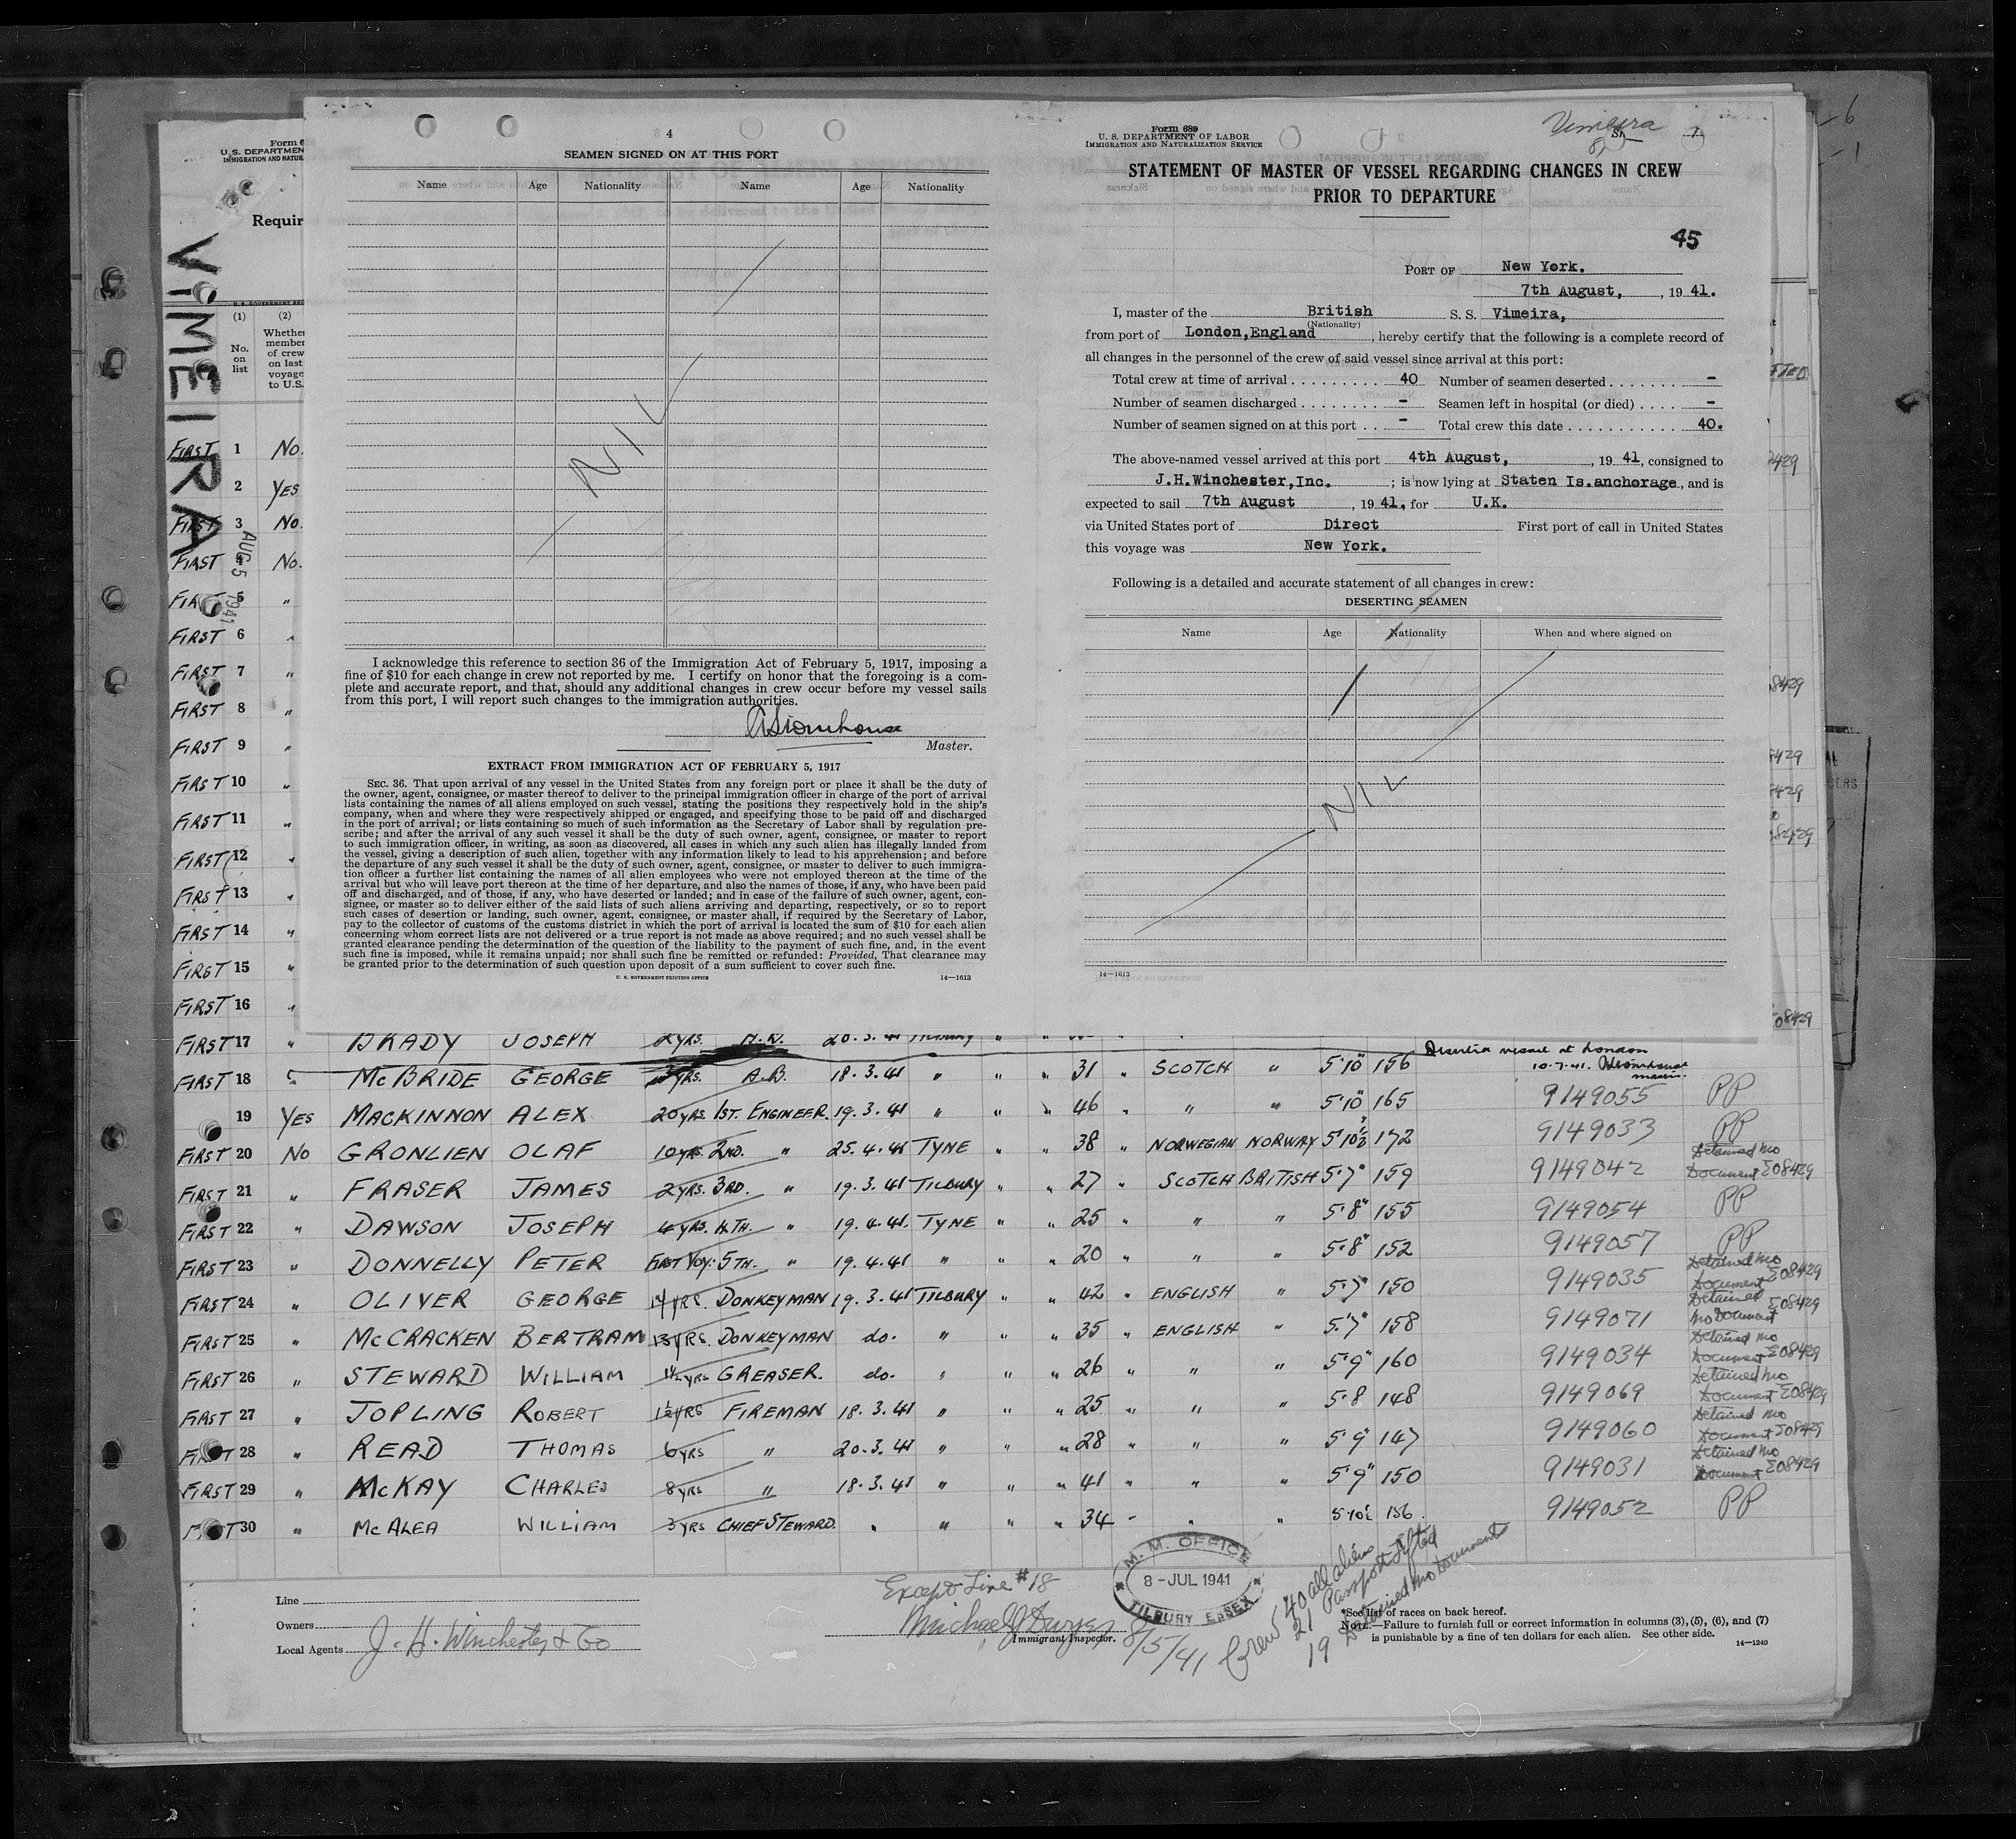 4
SEAMEN SIGNED ON AT THIS PORT
Name Age Nationality Name Age Nationality
NIL
I acknowledge this reference to section 36 of the Immigration Act of February 5, 1917, imposing a
fine of $10 for each change in crew not reported by me. I certify on honor that the foregoing is a com-
plete and accurate report, and that, should any additional changes in crew occur before my vessel sails
from this port, I will report such changes to the immigration authorities.
Master.
EXTRACT FROM IMMIGRATION ACT OF FEBRUARY 5, 1917
SEC. 36. That upon arrival of any vessel in the United States from any foreign port or place it shall be the duty of
the owner, agent, consignee, or master thereof to deliver to the principal immigration officer in charge of the port of arrival
lists containing the names of all aliens employed on such vessel, stating the positions they respectively hold in the ship's
company, when and where they were respectively shipped or engaged, and specifying those to be paid off and discharged
in the port of arrival; or lists containing so much of such information as the Secretary of Labor shall by regulation pre-
scribe; and after the arrival of any such vessel it shall be the duty of such owner, agent, consignee, or master to report
to such immigration officer, in writing, as soon as discovered, all cases in which any such alien has illegally landed from
the vessel, giving a description of such alien, together with any information likely to lead to his apprehension; and before
the departure of any such vessel it shall be the duty of such owner, agent, consignee, or master to deliver to such immigra-
tion officer a further list containing the names of all alien employees who were not employed thereon at the time of the
arrival but who will leave port thereon at the time of her departure, and also the names of those, if any, who have been paid
off and discharged, and of those, if any, who have deserted or landed; and in case of the failure of such owner, agent, con-
signee, or master so to deliver either of the said lists of such aliens arriving and departing, respectively, or so to report
such cases of desertion or landing, such owner, agent, consignee, or master shall, if required by the Secretary of Labor,
pay to the collector of customs of the customs district in which the port of arrival is located the sum of $10 for each alien
concerning whom correct lists are not delivered or a true report is not made as above required; and no such vessel shall be
granted clearance pending the determination of the question of the liability to the payment of such fine, and, in the event
such fine is imposed, while it remains unpaid; nor shall such fine be remitted or refunded: Provided, That clearance may
be granted prior to the determination of such question upon deposit of a sum sufficient to cover such fine.
U. S. GOVERNMENT PRINTING OFFICE 14—1613
Vimeira
Form 689
U. S. DEPARTMENT OF LABOR
IMMIGRATION AND NATURALIZATION SERVICE
STATEMENT OF MASTER OF VESSEL REGARDING CHANGES IN CREW
PRIOR TO DEPARTURE
45
PORT OF New York.
7th August, , 19 41.
I, master of the British S. S. Vimeira,
(Nationality)
from port of London,England , hereby certify that the following is a complete record of
all changes in the personnel of the crew of said vessel since arrival at this port:
Total crew at time of arrival . . . . . . . . . . 40 Number of seamen deserted . . . . . . . –
Number of seamen discharged . . . . . . . . – Seamen left in hospital (or died) . . . . –
Number of seamen signed on at this port . . – Total crew this date . . . . . . . . . . . . 40.
The above-named vessel arrived at this port 4th August, , 19 41, consigned to
J.H.Winchester,Inc. ; is now lying at Staten Is.anchorage, and is
expected to sail 7th August , 19 41, for U.K.
via United States port of Direct First port of call in United States
this voyage was New York.
Following is a detailed and accurate statement of all changes in crew:
DESERTING SEAMEN
Name Age Nationality When and where signed on
NIL
14—1613
VIMEIRA
AUG 5 1941
Form 6
U. S. DEPARTMEN
IMMIGRATION AND NATURA
Requir
(1) (2)
No. on list
Whether member of crew on last voyage to U.S.
FIRST 1 No.
2 YES
FIRST 3 No.
FIRST 4 No.
FIRST 5 "
FIRST 6 "
FIRST 7 "
FIRST 8 "
FIRST 9 "
FIRST 10 "
FIRST 11 "
FIRST 12 "
FIRST 13 "
FIRST 14 "
FIRST 15 "
FIRST 16 "
FIRST 17 " BRADY JOSEPH 2YRS. 20.3.41 TILBURY
FIRST 18 McBRIDE GEORGE 3YRS. A.B. 18.3.41 " " " 31 SCOTCH " 5'10" 156 Deserted vessel at London
10.7.41.
19 YES MACKINNON ALEX 20YRS. 1ST. ENGINEER. 19.3.41 " " " 46 " " " 5'10" 165 9149055 PP
FIRST 20 No GRONLIEN OLAF 10YRS. 2ND. " 25.4.41 TYNE " " 38 " NORWEGIAN NORWAY 5'10½ 172 9149033 PP
FIRST 21 " FRASER JAMES 2YRS. 3RD. " 19.3.41 TILBURY " " 27 " SCOTCH BRITISH 5'7" 159 9149042 Detained No Document E08429
FIRST 22 " DAWSON JOSEPH 4YRS. 4.TH. " 19.4.41. TYNE " " 25 " " " 5'8" 155 9149054 PP
FIRST 23 " DONNELLY PETER FIRST VOY. 5TH. " 19.4.41 " " " 20 " " " 5'8" 152 9149057 PP
FIRST 24 " OLIVER GEORGE DONKEYMAN 19.3.41 TILBURY " " 42 " ENGLISH " 5'7" 150 9149035 Detained No Document E08429
FIRST 25 " McCRACKEN BERTRAM 13YRS. DONKEYMAN do. " " " 35 " ENGLISH " 5'7" 158 9149071 Detained No Document E08429
FIRST 26 " STEWARD WILLIAM GREASER. do. " " " 26 " " " 5'9" 160 9149034 Detained No Document E08429
FIRST 27 " JOPLING ROBERT 1½YRS FIREMAN 18.3.41 " " " 25 " " " 5'8 148 9149069 Detained No Document E08429
FIRST 28 " READ THOMAS 6YRS " 20.3.41 " " " 28 " " " 5'9" 147 9149060 Detained No Document E08429
FIRST 29 " McKAY CHARLES 8YRS " 18.3.41 " " " 41 " " " 5'9" 150 9149031 Detained No Document E08429
FIRST 30 " McALEA WILLIAM 3YRS CHIEF STEWARD. " " " " 34 " " " 5'10½ 156. 9149052 PP
Line
Owners
Local Agents J. H. Winchester & Co
Except Line #18
Immigrant Inspector.
8/5/41
M. M. OFFICE
8-JUL 1941
TILBURY ESSEX
Crew 40 all aliens
21 Passport lifted
19 Detained No Documents
*See list of races on back hereof.
NOTE.—Failure to furnish full or correct information in columns (3), (5), (6), and (7)
is punishable by a fine of ten dollars for each alien. See other side.
14—1240